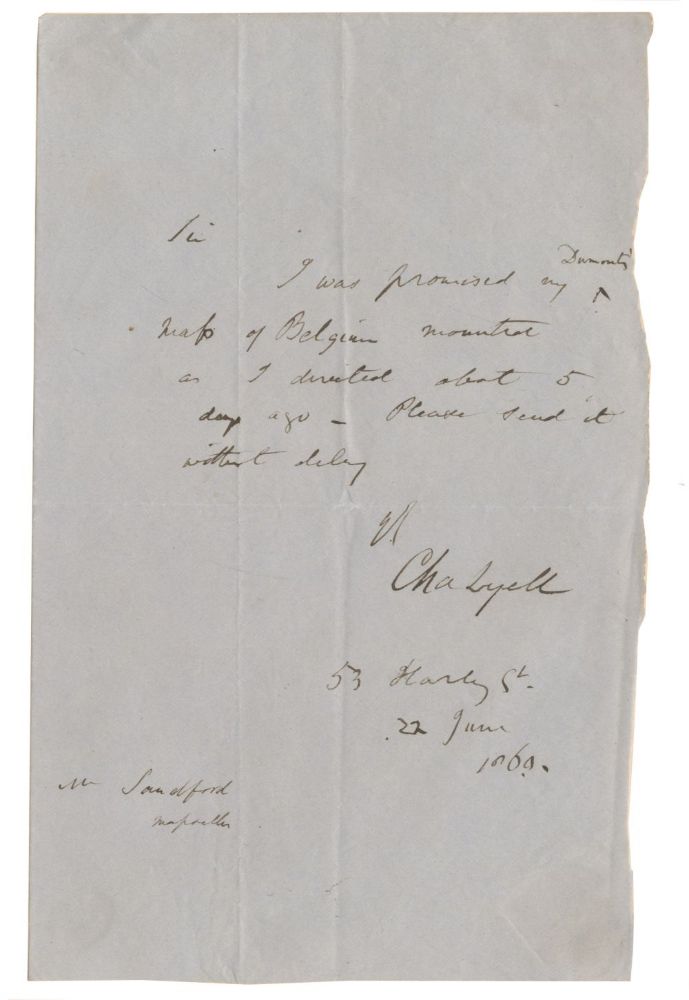 Sir
I was promised my Dumont's
map of Belgium mounted
as I directed about 5
days ago – Please send it
without delay
Cha Lyell
53 Harley St.
22 June
1860.
Mr Sandford
mapseller